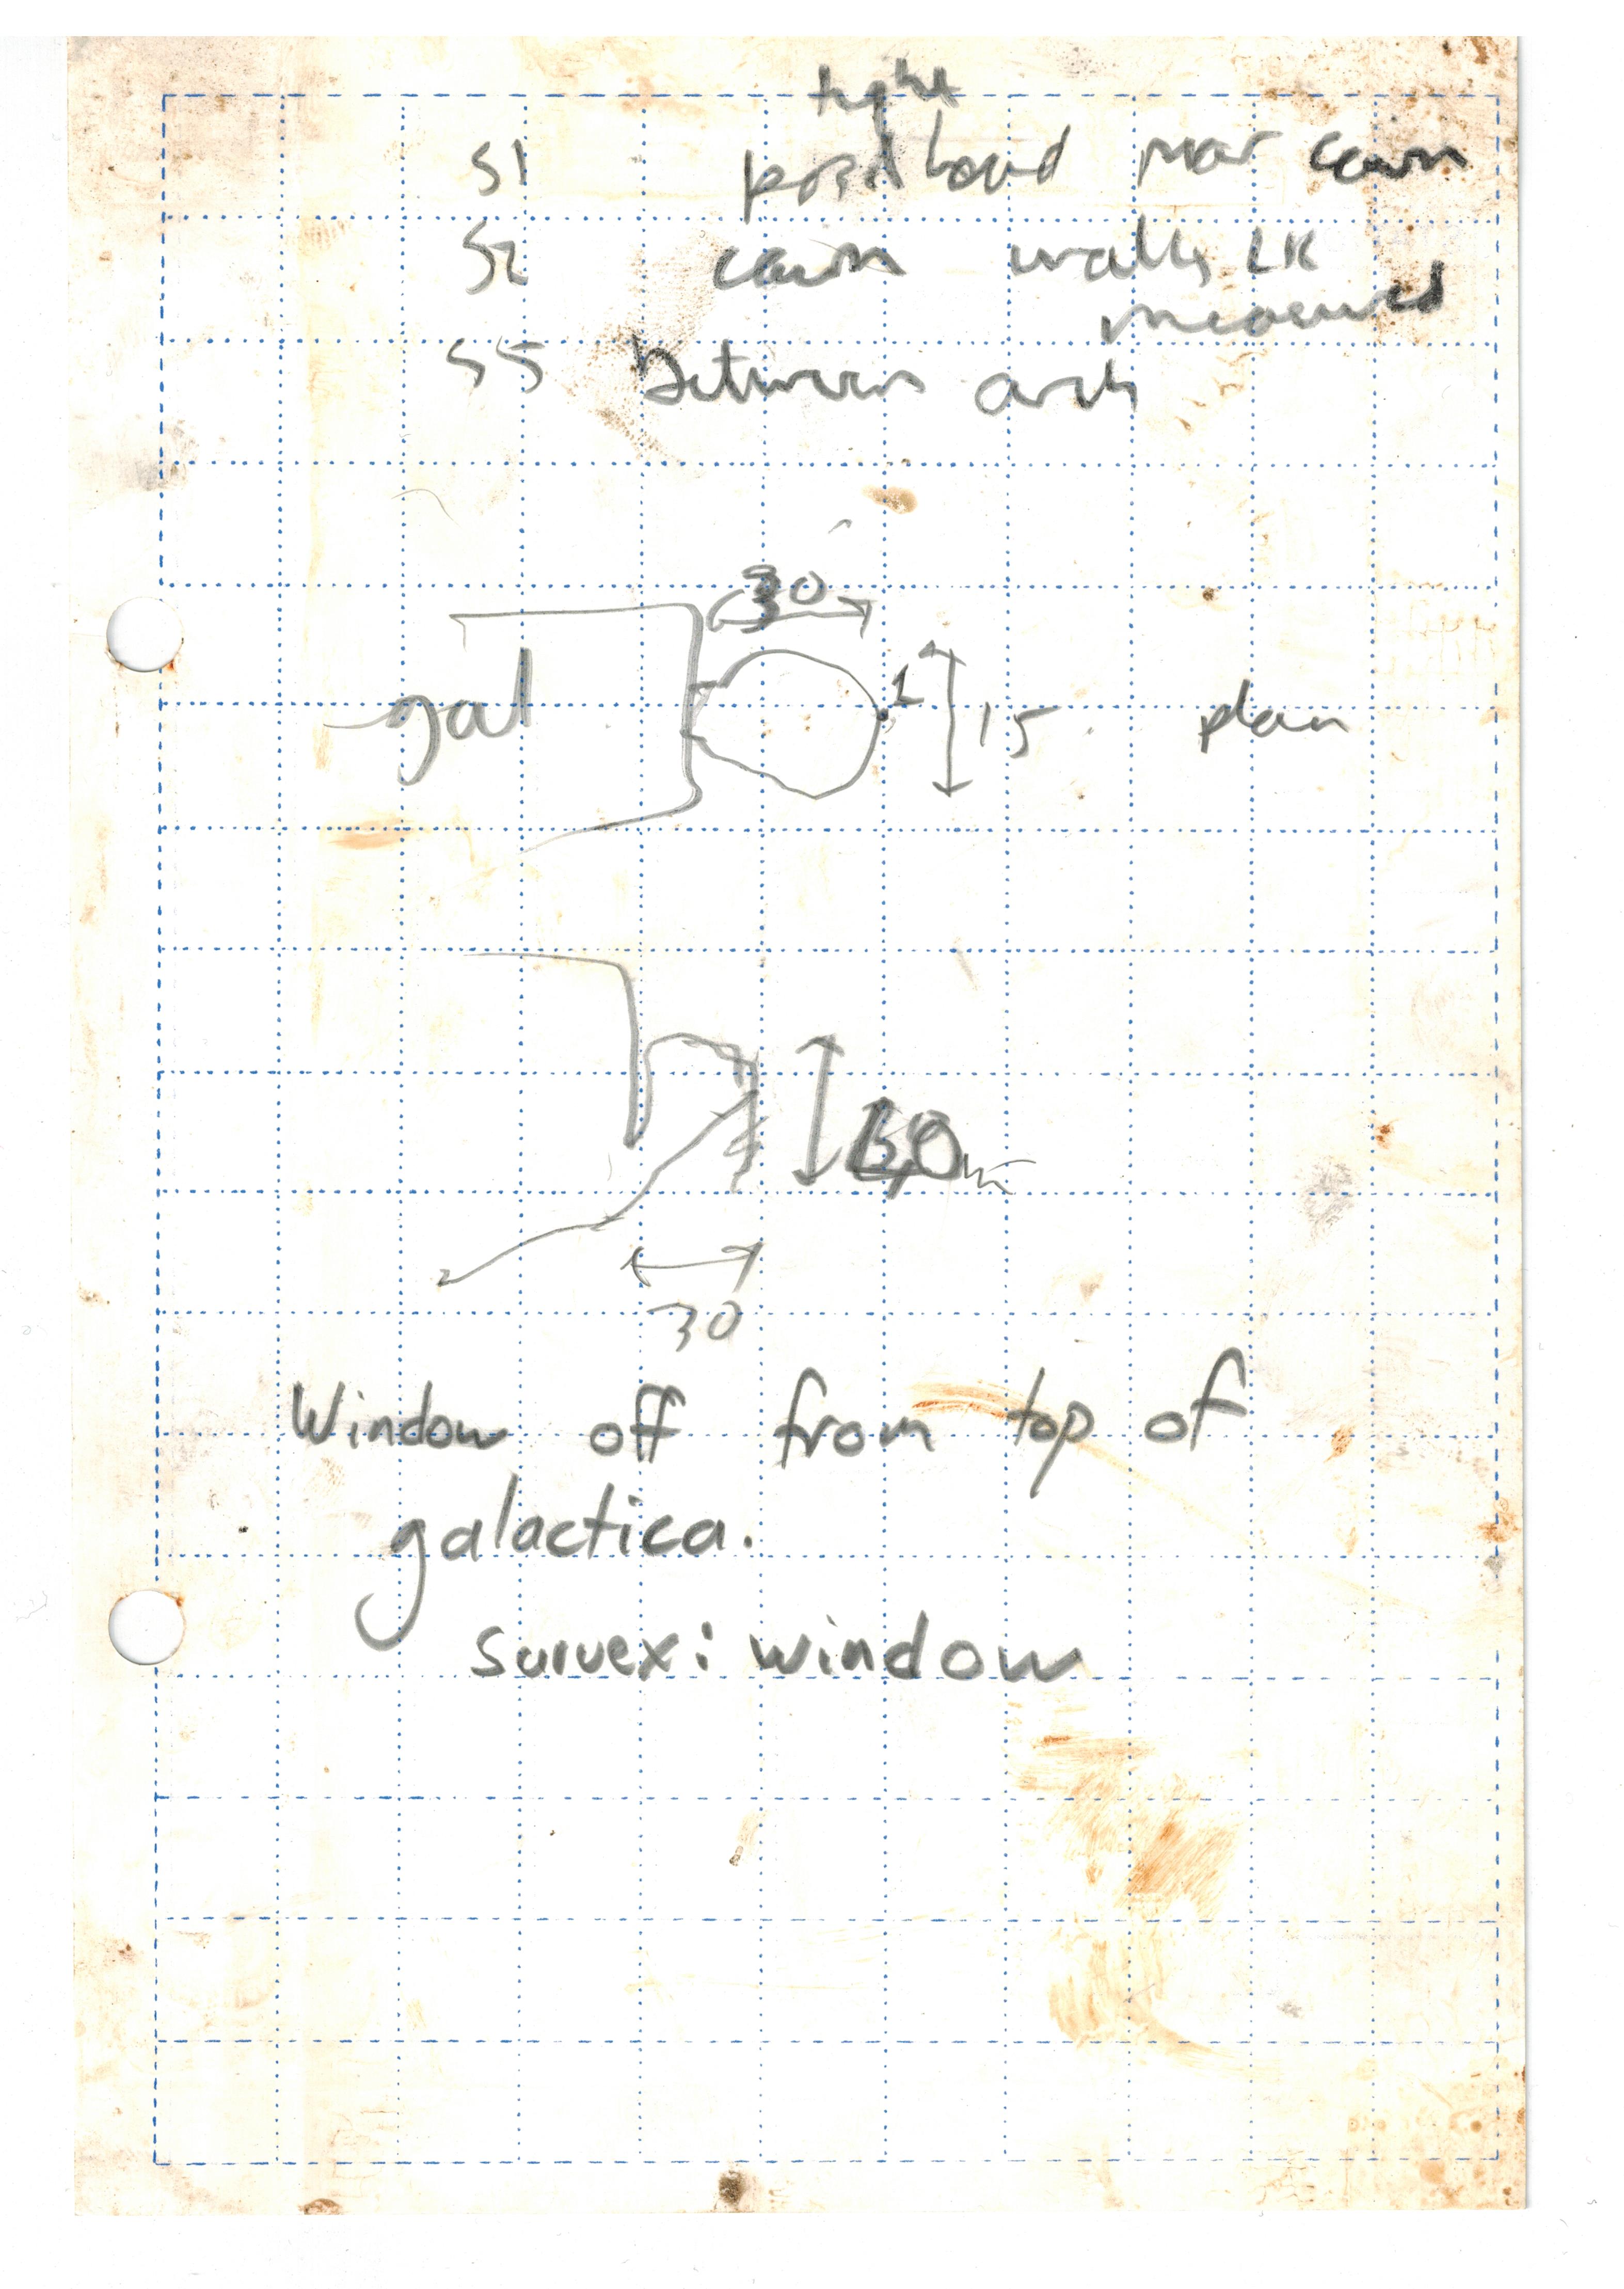 tight
S1 near cairn
S2 cairn walls LR
measured
S5 between arch
30
gal 1 15 plan
30
Window off from top of
galactica.
survex: window